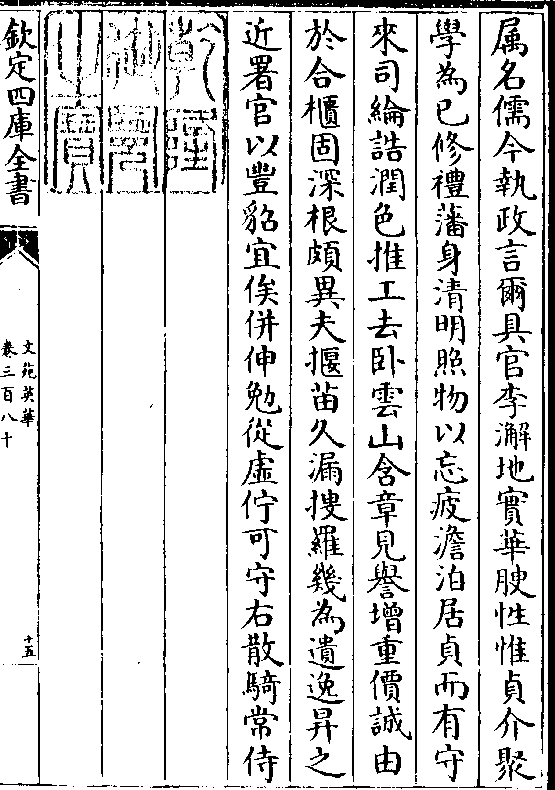 属名儒今執政言爾具官李澥地實華腴性惟貞介聚
學為已修禮藩身清明照物以忘疲澹泊居貞而有守
來司綸誥潤色推工去卧雲山含章見譽增重價誠由
於合櫃固深根頗異夫揠苗久漏搜羅幾為遺逸昇之
近署官以豐貂宜俟併伸勉從虛佇可守右散騎常侍
乾隆御覽之寶
欽定四庫全書
文苑英華
卷三百八十
十五